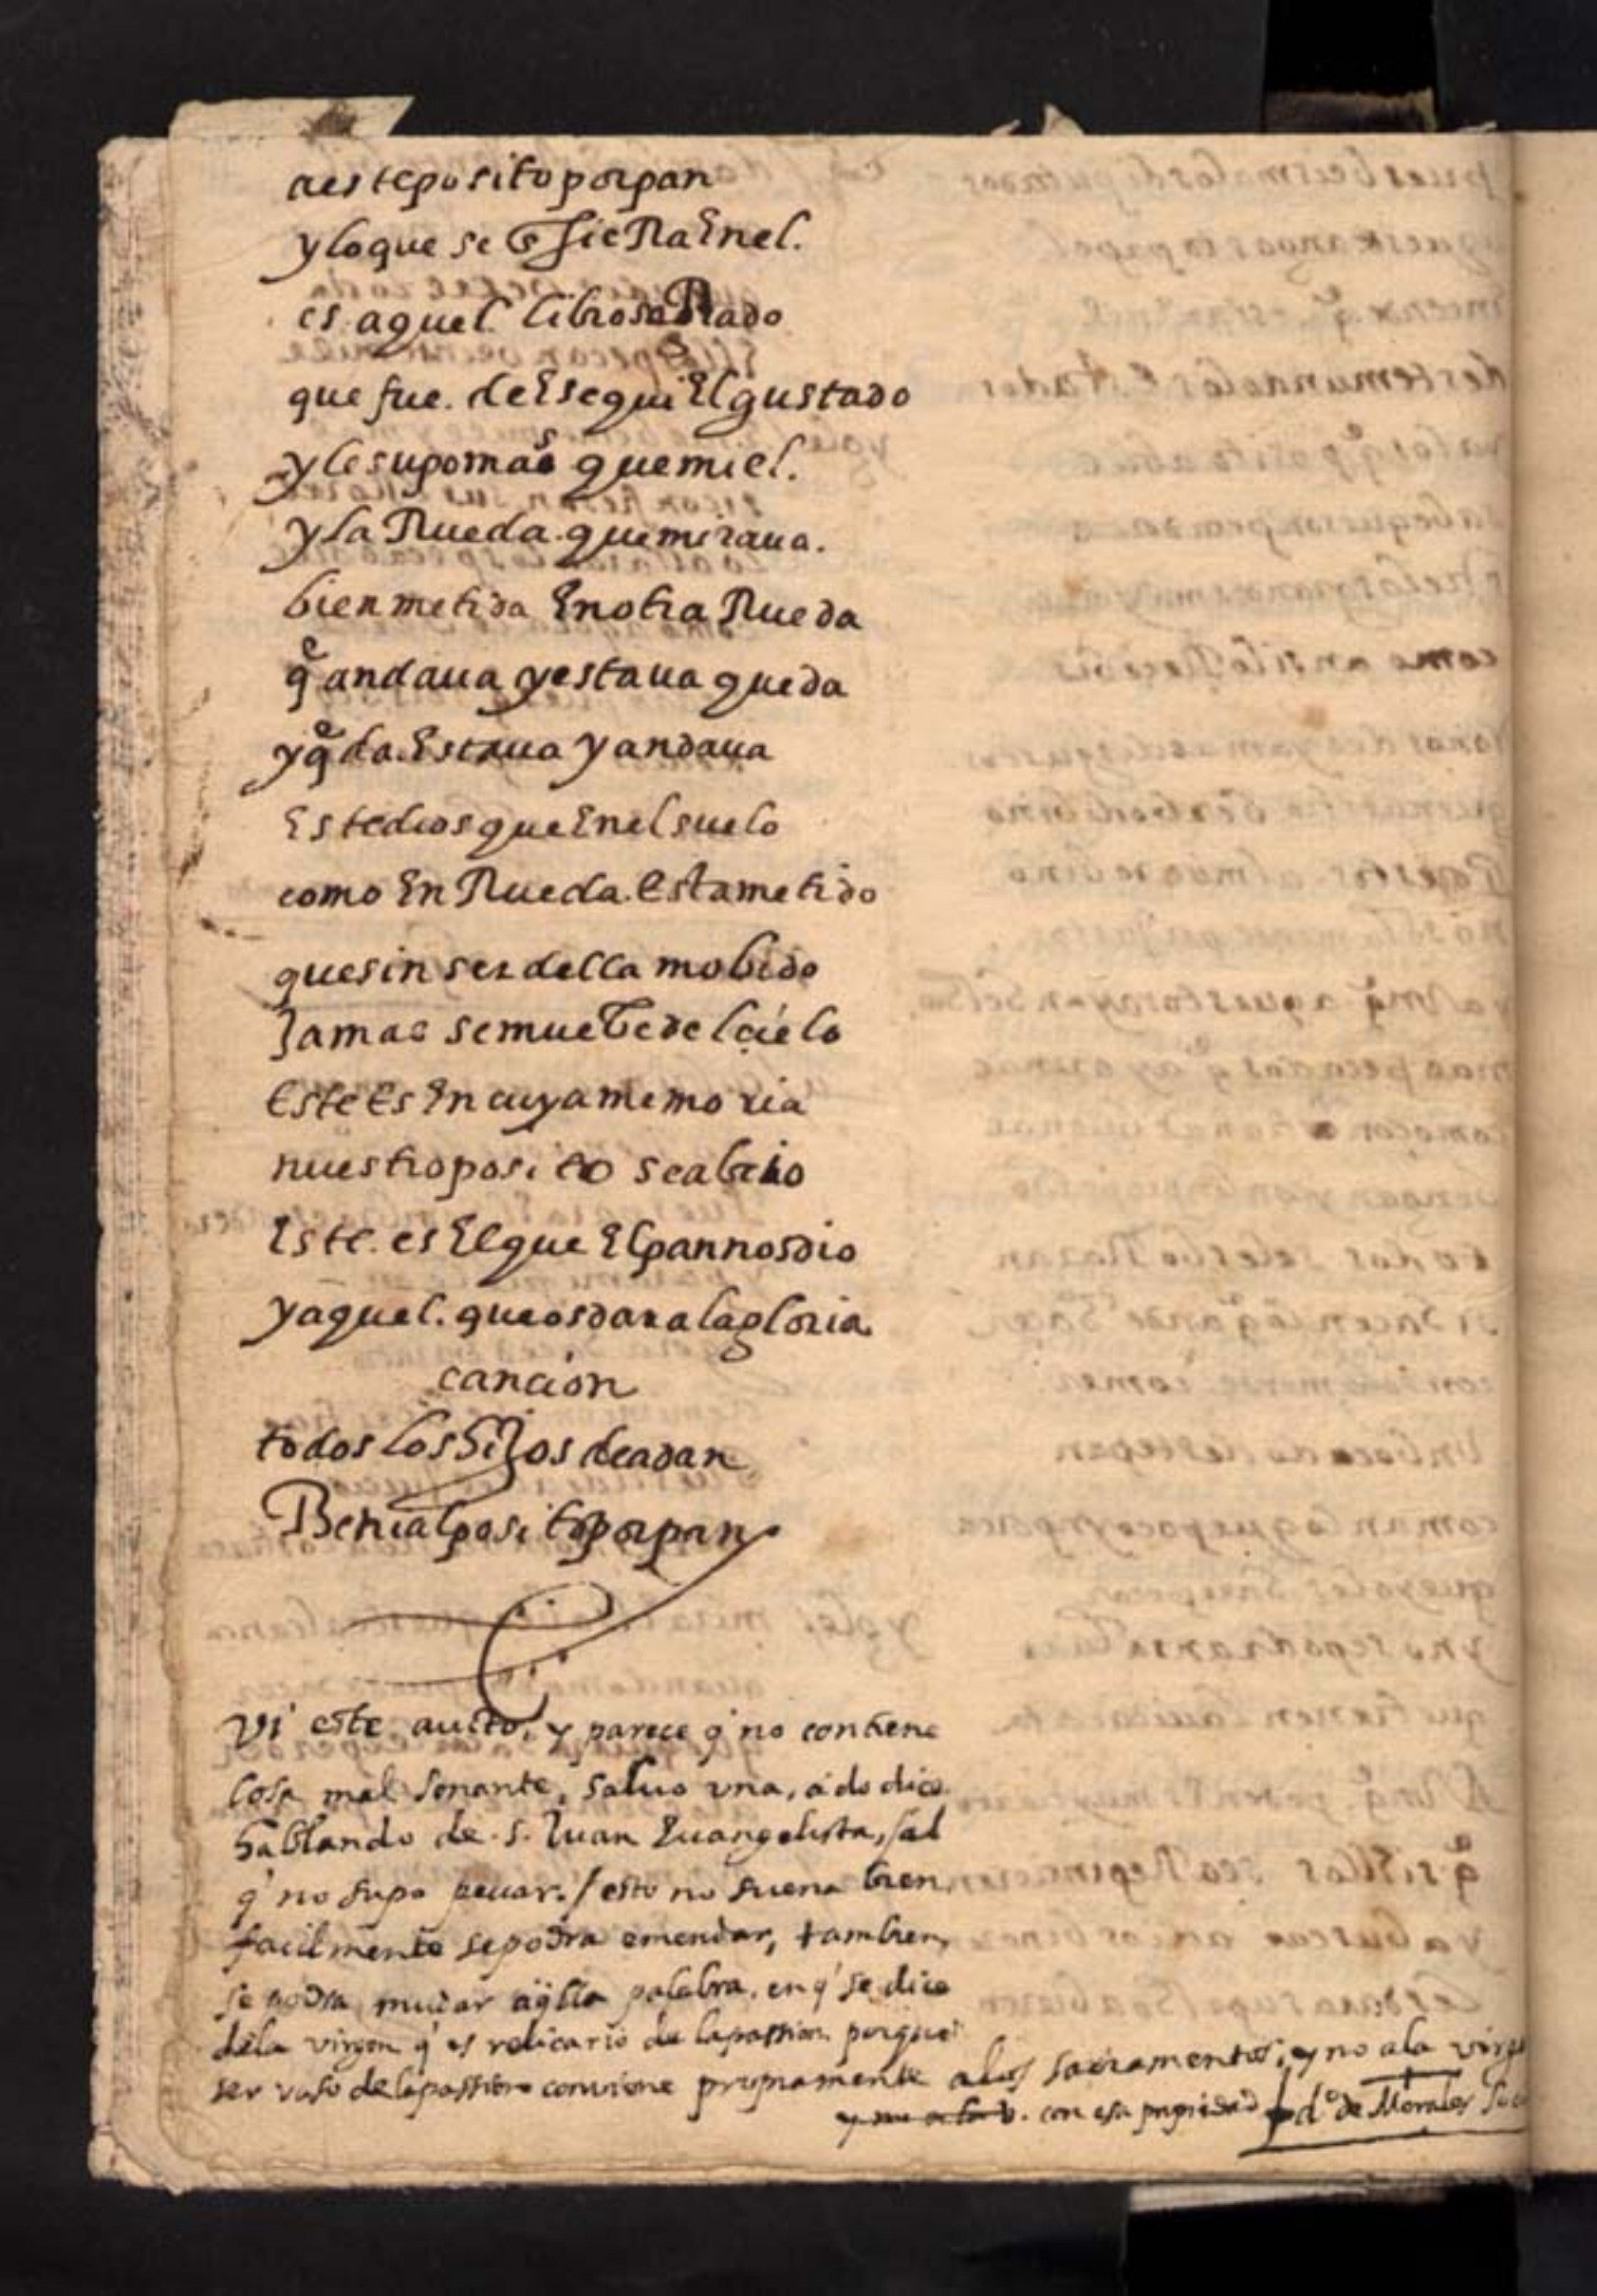 aesteposito porpan
yloque se Ensierra Enel.
es aquel libro sellado
que fue. de Esequi El gustado
yle supo mas que miel.
yla Rueda. que miraua.
bien metida En otra Rueda
q̃ andaua y estaua queda
y q̃da. Estaua y andaua
Este dios que Enel suelo
como En Rueda. Esta metido
que sin ser della mobido
Jamas se muebe del cielo
Este Es En cuya memoria
nuestro posito se abrio
Este. es El que El pan nos dio
y aquel. que os dara la gloria
cancion
todos los hijos de adan
Beni al posito por pan
Vi este aucto, y parece q̃ no contiene
cosa mal sonante, saluo vna, a do dice
hablando de. S. Iuan Euangelista, sal
q̃ no supo pecar. / esto no suena bien,
facilmente se podra emendar, tambien,
se podra mudar aq̃lla palabra, en q̃ se dice
dela virgen q̃ es relicario de la passion porque
ser vaso de la passion conuiene propriamente a los sacramentos, y no ala virge
y no a la v. con esa propriedad p.º de Morales